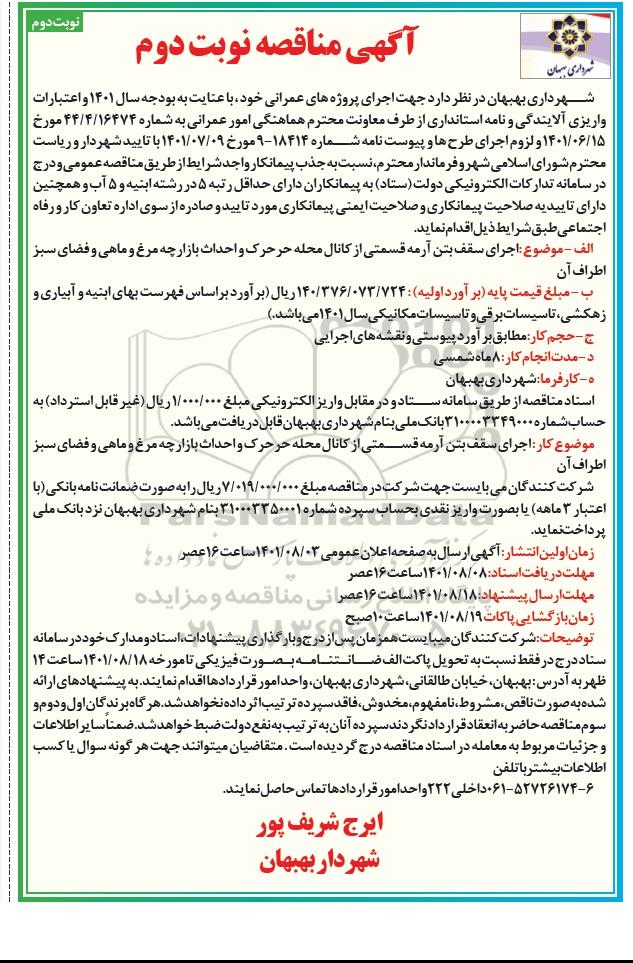 نوبت دوم
شهرداری بهبهان
آگهی مناقصه نوبت دوم
شهرداری بهبهان در نظر دارد جهت اجرای پروژه های عمرانی خود، با عنایت به بودجه سال ۱۴۰۱ و اعتبارات
واریزی آلایندگی و نامه استانداری از طرف معاونت محترم هماهنگی امور عمرانی به شماره ۴۴/۴/۱۶۴۷۴ مورخ
۱۴۰۱/۰۶/۱۵ و لزوم اجرای طرح ها و پیوست نامه شماره ۱۸۴۱۴-۹ مورخ ۱۴۰۱/۰۷/۰۹ با تایید شهردار و ریاست
محترم شورای اسلامی شهر و فرماندار محترم، نسبت به جذب پیمانکار واجد شرایط از طریق مناقصه عمومی و درج
در سامانه تدارکات الکترونیکی دولت (ستاد) به پیمانکاران دارای حداقل رتبه ۵ در رشته ابنیه و ۵ آب و همچنین
دارای تاییدیه صلاحیت پیمانکاری و صلاحیت ایمنی پیمانکاری مورد تایید و صادره از سوی اداره تعاون کار و رفاه
اجتماعی طبق شرایط ذیل اقدام نماید.
الف - موضوع: اجرای سقف بتن آرمه قسمتی از کانال محله حرحرک و احداث بازارچه مرغ و ماهی و فضای سبز
اطراف آن
ب - مبلغ قیمت پایه (برآورد اولیه): ۱۴۰/۳۷۶/۰۷۳/۷۲۴ ریال (برآورد براساس فهرست بهای ابنیه و آبیاری و
زهکشی، تاسیسات برقی و تاسیسات مکانیکی سال ۱۴۰۱ می باشد.)
ج - حجم کار: مطابق برآورد پیوستی و نقشه های اجرایی
د - مدت انجام کار: ۸ ماه شمسی
ه - کارفرما: شهرداری بهبهان
اسناد مناقصه از طریق سامانه ستاد و در مقابل واریز الکترونیکی مبلغ ۱/۰۰۰/۰۰۰ ریال (غیر قابل استرداد) به
حساب شماره ۳۱۰۰۰۰۳۳۴۹۰۰۰ بانک ملی بنام شهرداری بهبهان قابل دریافت می باشد.
موضوع کار: اجرای سقف بتن آرمه قسمتی از کانال محله حرحرک و احداث بازارچه مرغ و ماهی و فضای سبز
اطراف آن
شرکت کنندگان می بایست جهت شرکت در مناقصه مبلغ ۷/۰۱۹/۰۰۰/۰۰۰ ریال را به صورت ضمانت نامه بانکی (با
اعتبار ۳ ماهه) یا بصورت واریز نقدی بحساب سپرده شماره ۳۱۰۰۰۰۳۳۵۰۰۰۱ بنام شهرداری بهبهان نزد بانک ملی
پرداخت نماید.
زمان اولین انتشار: آگهی ارسال به صفحه اعلان عمومی ۱۴۰۱/۰۸/۰۳ ساعت ۱۶ عصر
مهلت دریافت اسناد: ۱۴۰۱/۰۸/۰۸ ساعت ۱۶ عصر
مهلت ارسال پیشنهاد: ۱۴۰۱/۰۸/۱۸ ساعت ۱۶ عصر
زمان بازگشایی پاکات ۱۴۰۱/۰۸/۱۹ ساعت ۱۰ صبح
توضیحات: شرکت کنندگان میبایست همزمان پس از درج و بارگذاری پیشنهادات، اسناد و مدارک خود در سامانه
ستاد درج در فقط نسبت به تحویل پاکت الف ضمانتنامه بصورت فیزیکی تا مورخه ۱۴۰۱/۰۸/۱۸ ساعت ۱۴
ظهر به آدرس: بهبهان، خیابان طالقانی، شهرداری بهبهان، واحد امور قراردادها اقدام نمایند. به پیشنهادهای ارائه
شده به صورت ناقص، مشروط، نامفهوم، مخدوش، فاقد سپرده ترتیب اثر داده نخواهد شد. هرگاه برندگان اول و دوم و
سوم مناقصه حاضر به انعقاد قرارداد نگردند سپرده آنان به ترتیب به نفع دولت ضبط خواهد شد. ضمناً سایر اطلاعات
و جزئیات مربوط به معامله در اسناد مناقصه درج گردیده است. متقاضیان میتوانند جهت هرگونه سوال یا کسب
اطلاعات بیشتر با تلفن
۰۶۱-۵۲۷۲۶۱۷۴-۶ داخلی ۲۲۲ واحد امور قراردادها تماس حاصل نمایند.
ایرج شریف پور
شهردار بهبهان
ParsNamadData
پایگاه اطلاع رسانی مناقصه و مزایده
۰۲۱-۸۸۳۴۹۶۷۰-۵